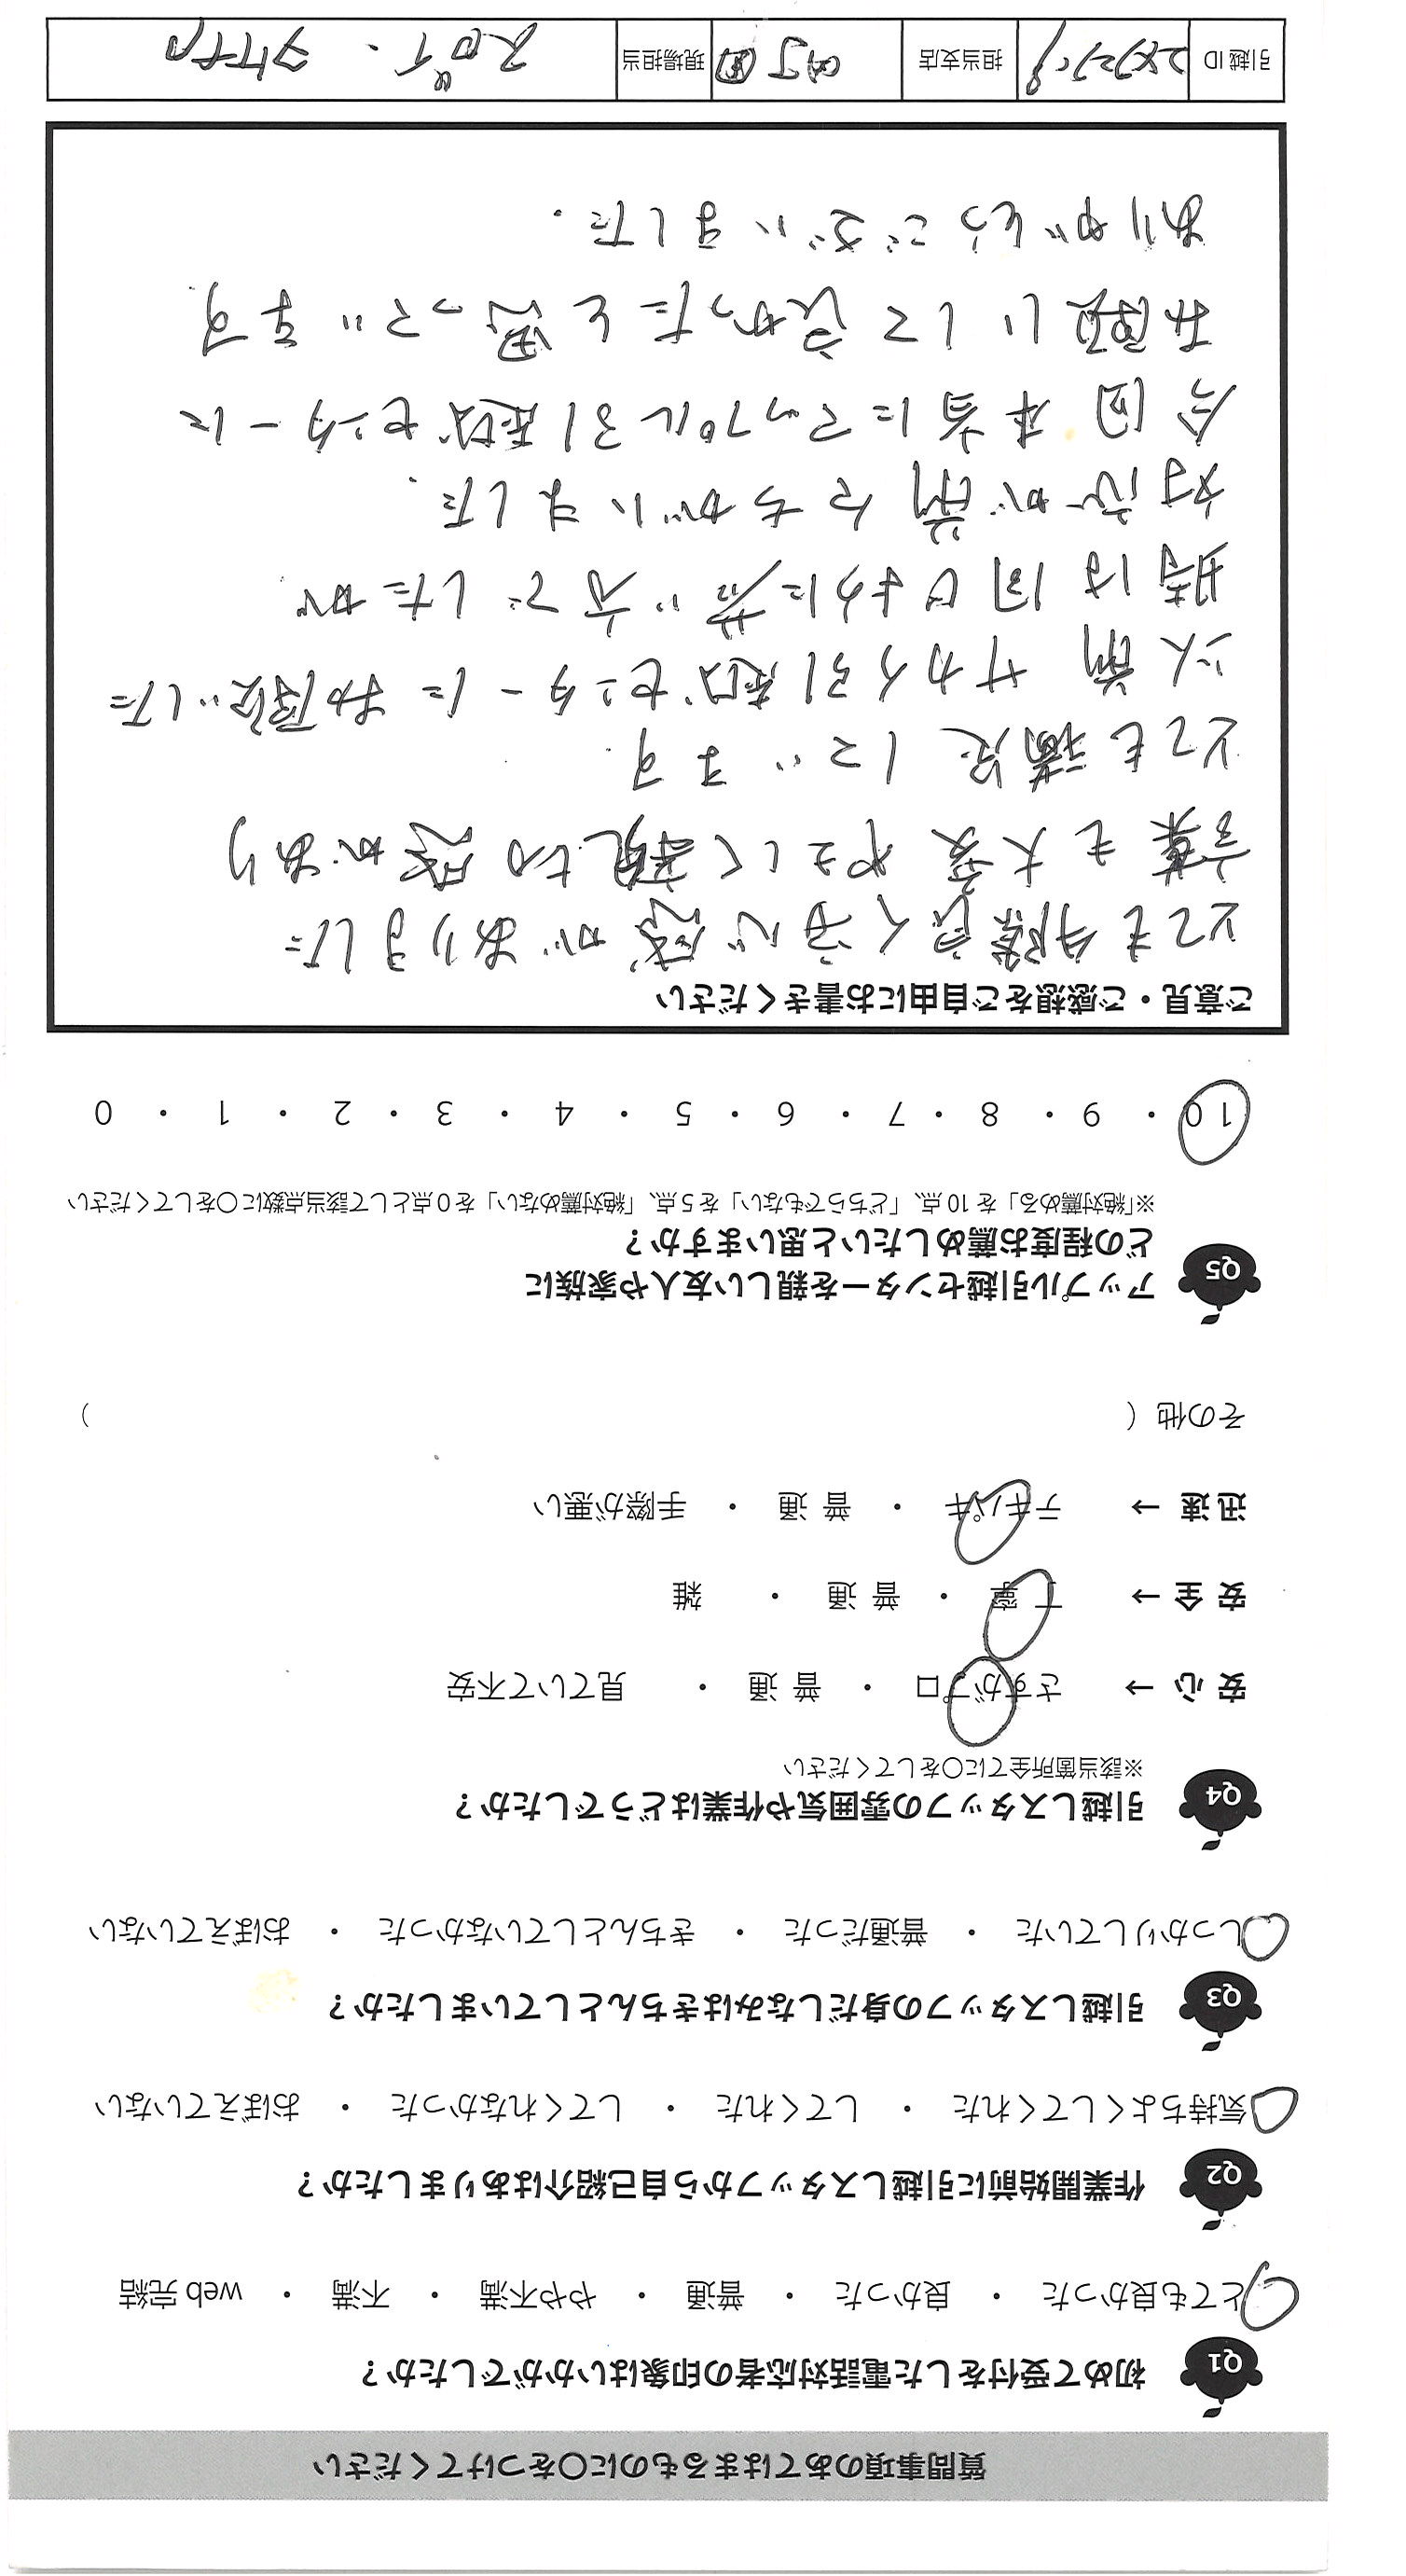 質問事項のあてはまるものに○をつけてください
Q1 初めて受付をした電話対応者の印象はいかがでしたか？
とても良かった ・ 良かった ・ 普通 ・ やや不満 ・ 不満 ・ web 完結
Q2 作業開始前に引越しスタッフから自己紹介はありましたか？
気持ちよくしてくれた ・ してくれた ・ してくれなかった ・ おぼえていない
Q3 引越しスタッフの身だしなみはきちんとしていましたか？
しっかりしていた ・ 普通だった ・ きちんとしていなかった ・ おぼえていない
Q4 引越しスタッフの雰囲気や作業はどうでしたか？
※該当箇所全てに○をしてください
安心 → さすがプロ ・ 普通 ・ 見ていて不安
安全 → 丁寧 ・ 普通 ・ 雑
迅速 → テキパキ ・ 普通 ・ 手際が悪い
その他（ ）
Q5 アップル引越センターを親しい友人や家族に
どの程度お薦めしたいと思いますか？
※「絶対薦める」を 10 点、「どちらでもない」を 5 点、「絶対薦めない」を 0 点として該当点数に○をしてください
10 ・ 9 ・ 8 ・ 7 ・ 6 ・ 5 ・ 4 ・ 3 ・ 2 ・ 1 ・ 0
ご意見・ご感想をご自由にお書きください
とても手際良く安心感がありました
言葉も大変やさしく親切感があり
とても満足しています
以前 サカイ引越センターにお願いした
時は同じように若い方でしたが
対応が前とちがいました.
今回本当にアップル引越センターに
お願いして良かったと思っています
ありがとうございました.
引越 ID 担当支店 現場担当